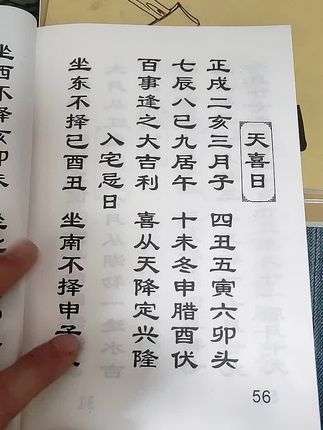 天喜日
正戌二亥三月子 四丑五寅六卯头
七辰八巳九居午 十未冬申腊酉伏
百事逢之大吉利 喜从天降定兴隆
入宅忌日
坐东不择巳酉丑 坐南不择申子
坐西不择亥卯未 坐
56